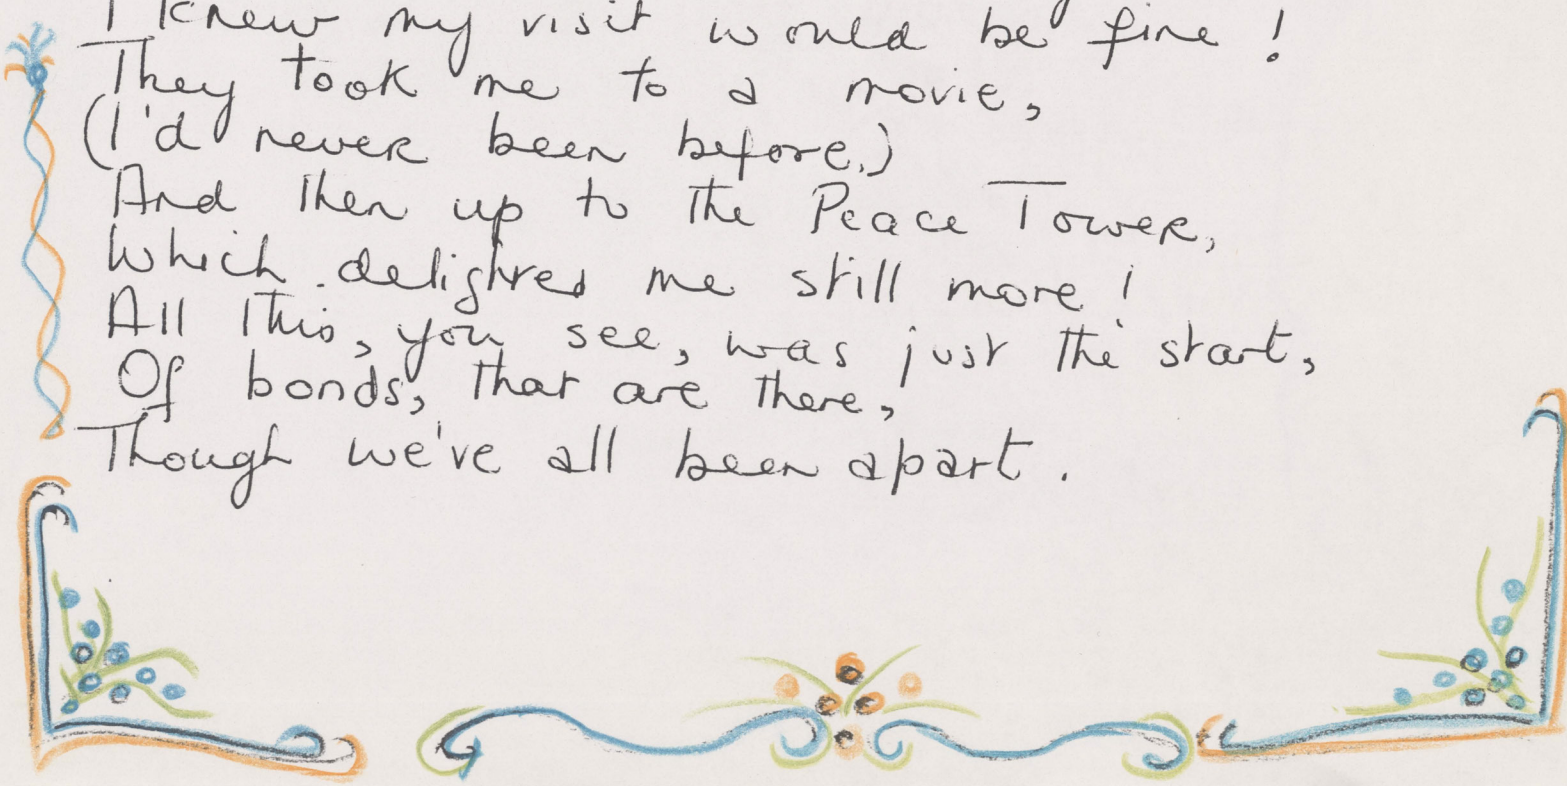 I knew my visit would be fine!
They took me to a movie,
(I'd never been before,)
And then up to the Peace Tower,
Which delighted me still more!
All this, you see, was just the start,
Of bonds, that are there,
Though we've all been apart.